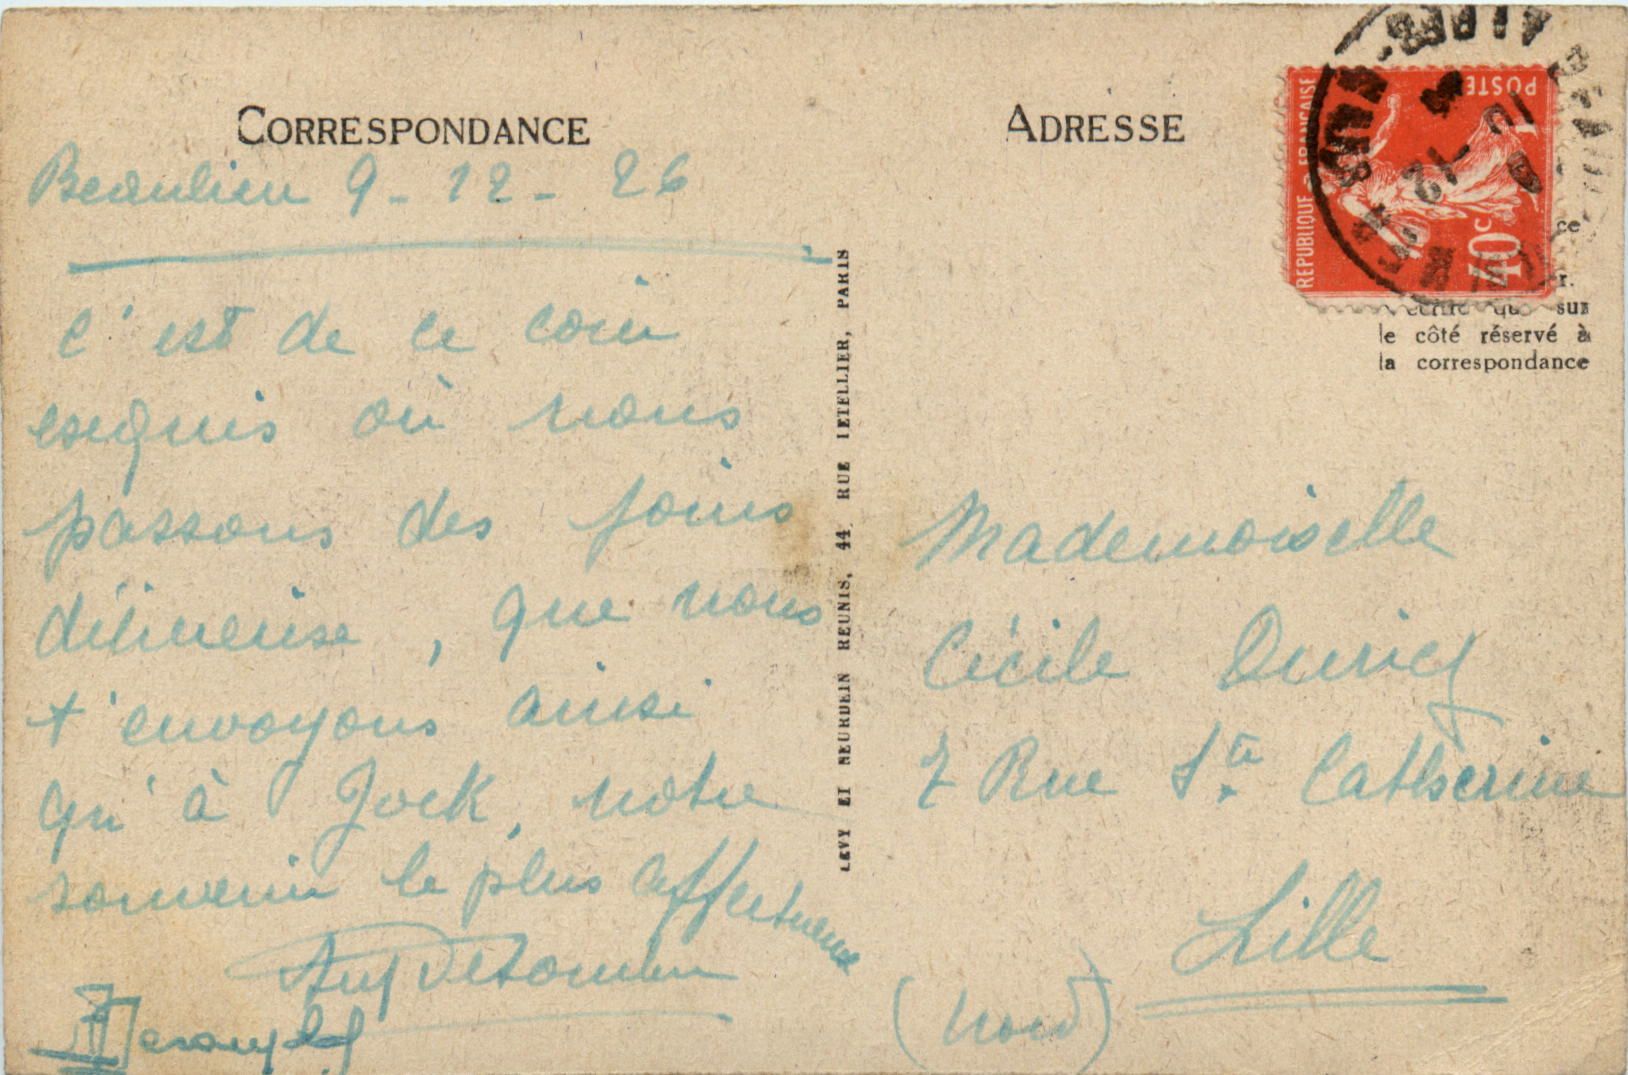 CORRESPONDANCE
Beaulieu 9-12-26
C'est de ce coin
exquis où nous
passons des jours
délicieuse, que nous
t'envoyons ainsi
qu'à Jock, notre
souvenir le plus affectueux
LEVY ET NEURDEIN REUNIS, 44, RUE LETELLIER, PARIS
ADRESSE
REPUBLIQUE FRANÇAISE
POSTE
10c
sur
le côté réservé à
la correspondance
Mademoiselle
Cécile
7 Rue Ste Catherine
Lille
(Nord)